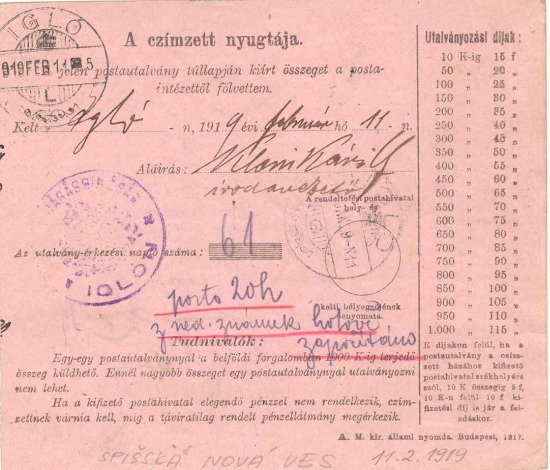 IGLÓ
919 FEB 11
A czímzett nyugtája.
A jelen postautalvány túllapján kiírt összeget a posta-
intézettől fölvettem.
Kelt Igló -n, 1919 évi február hó 11-n.
Aláírás:
irodavezető
A rendeltetési postahivatal
hely- és
IGLÓ
Az utalvány-érkezési napló száma: 61
porto 20h
keleti bélyegzőjének
lenyomata.
z ned. známek hotově
zapraveno
Tudnivalók:
Egy-egy postautalvánnyal a belföldi forgalomban 1000 K-ig terjedő
összeg küldhető. Ennél nagyobb összeget egy postautalvánnyal utalványozni
nem lehet.
Ha a kifizető postahivatal elegendő pénzzel nem rendelkezik, czím-
zettnek várnia kell, míg a táviratilag rendelt pénzellátmány megérkezik.
Utalványozási díjak:
10 K-ig 15 f
50 " 20 "
100 " 25 "
150 " 30 "
200 " 35 "
250 " 40 "
300 " 45 "
350 " 50 "
400 " 55 "
450 " 60 "
500 " 65 "
550 " 70 "
600 " 75 "
650 " 80 "
700 " 85 "
750 " 90 "
800 " 95 "
850 " 100 "
900 " 105 "
950 " 110 "
1,000 " 115 "
K díjakon felül, ha a
postautalvány a czím-
zett házához kifizető
postahivatal székhelyén
szól, 10 K összegig 5 f,
10 K-n felül 10 f ki-
fizetési díj is jár a fel-
adáskor.
A. M. kir. állami nyomda. Budapest, 1917.
SPIŠSKÁ NOVÁ VES 11.2.1919